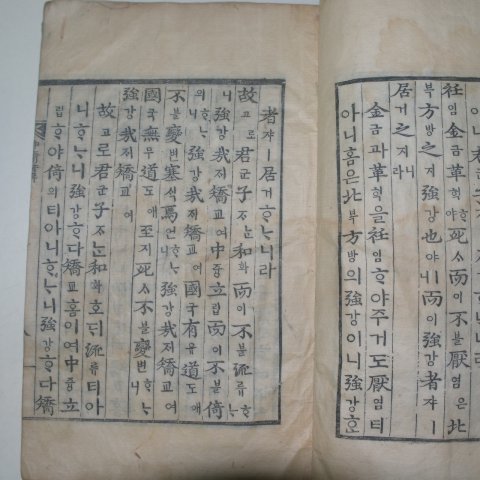 衽임金금革혁ᄒᆞ야死ᄉᆞ而이不블厭염은北
북方방之지強강也야ㅣ니而이強강者쟈ㅣ
居거之지니라
金금과革혁을衽임ᄒᆞ야주거도厭염티
아니홈은北북方방의強강이니強강ᄒᆞᆫ
者쟈ㅣ居거ᄒᆞᄂᆞ니라
故고로君군子ᄌᆞᄂᆞᆫ和화而이不블流류ᄒᆞᄂᆞ
니強강哉ᄌᆡ矯교여中듕立립而이不블倚
의ᄒᆞᄂᆞ니強강哉ᄌᆡ矯교여國국有유道도애
不블變변塞ᄉᆡᆨ焉언ᄒᆞᄂᆞ니強강哉ᄌᆡ矯교여
國국無무道도애至지死ᄉᆞ不블變변ᄒᆞᄂᆞ니
強강哉ᄌᆡ矯교여
故고로君군子ᄌᆞᄂᆞᆫ和화호ᄃᆡ流류티아
니ᄒᆞᄂᆞ니強강ᄒᆞ다矯교홈이여中듕立
립ᄒᆞ야倚의티아니ᄒᆞᄂᆞ니強강ᄒᆞ다矯